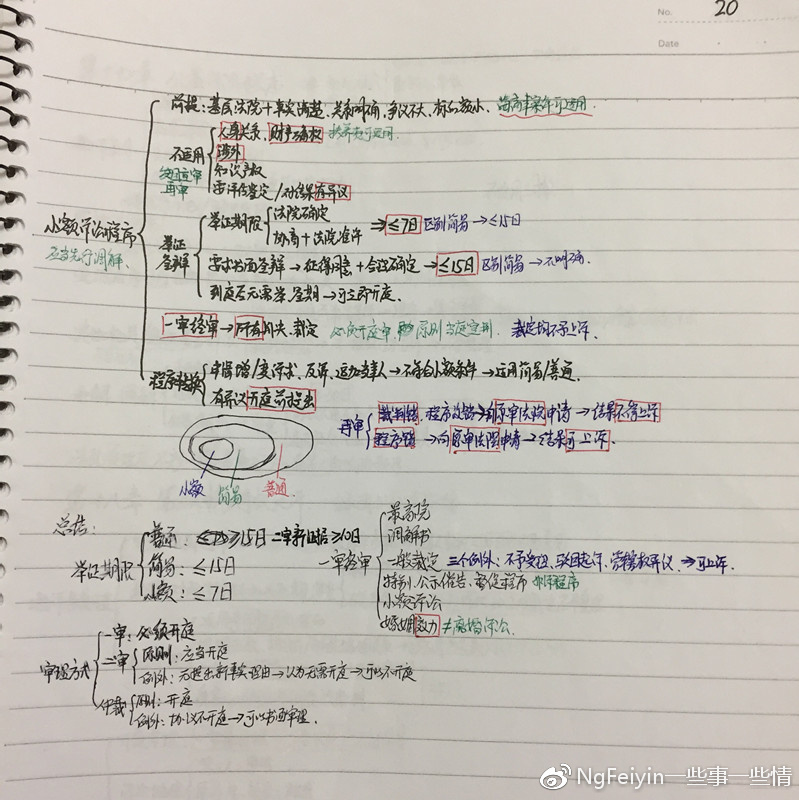 No. 20
Date
前提：基层法院+事实清楚、关系明确、争议不大、标的额小、海商事案件可适用
人身关系、财产确权
不适用 涉外
知识产权
再审
需评估鉴定/对结果有异议
小额诉讼程序
应当先行调解
举证 答辩
举证期限 法院确定
协商+法院准许 ⇒ ≤7日 区别简易→≤15日
要求书面答辩→征得同意+合理确定→≤15日 区别简易→不明确
到庭后无需举、答期→可立即开庭.
一审终审→所有判决、裁定 必须开庭审, 原则当庭宣判. 裁定均不予上诉.
程序转换 申请增/变诉求、反诉、追加当事人→不符合小额条件→适用简易/普通.
有异议开庭前提出
再审 裁判错、程序没错→向原审法院申请→结果不得上诉
程序错→向原审法院申请→结果可上诉.
小额 简易 普通
总结：
举证期限
普通：≥15日 二审新证据≥10日
简易：≤15日
小额：≤7日
一审终审
最高院
调解书
一般裁定 三个例外：不予受理、驳回起诉、管辖权异议. ⇒可上诉.
特别、公示催告、督促程序
小额诉讼
婚姻效力 ≠离婚诉讼.
审理方式
一审：必须开庭
二审 原则：应当开庭
例外：无提出新事实理由→认为无需开庭→可以不开庭
仲裁 原则：开庭
例外：协议不开庭→可以书面审理.
NgFeiyin一些事一些情